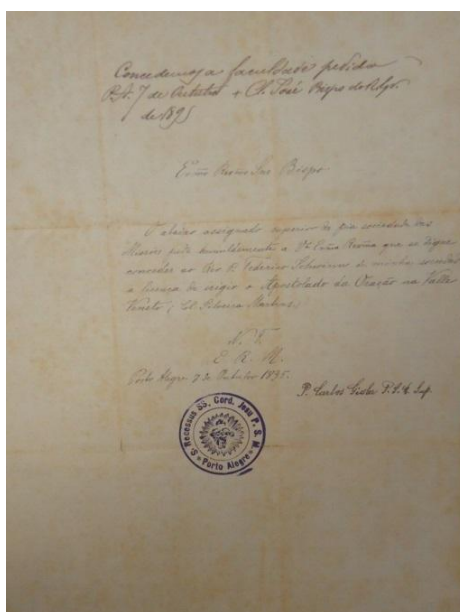 Concedemos a faculdade pedida
P. A. 7 de Outubro + C. José Bispo do Rdgr.
de 1895
Exmo Revmo Snr Bispo
O abaixo assignado superior da pia sociedade das
Missões pede humildemente a Va Exma Revma que se digne
conceder ao Revo P. Federico Schwinn da mesma sociedade
a licença de erigir o Apostolado da Oração na Valle
Veneto (Col. Silveira Martins)
N. T.
E. R. M.
Porto Alegre 7 de Outubro 1895.
P. Carlos Gissler P. S. M. Sup.
S. Recessus SS. Cord. Jesu P. S. M.
Porto Alegre